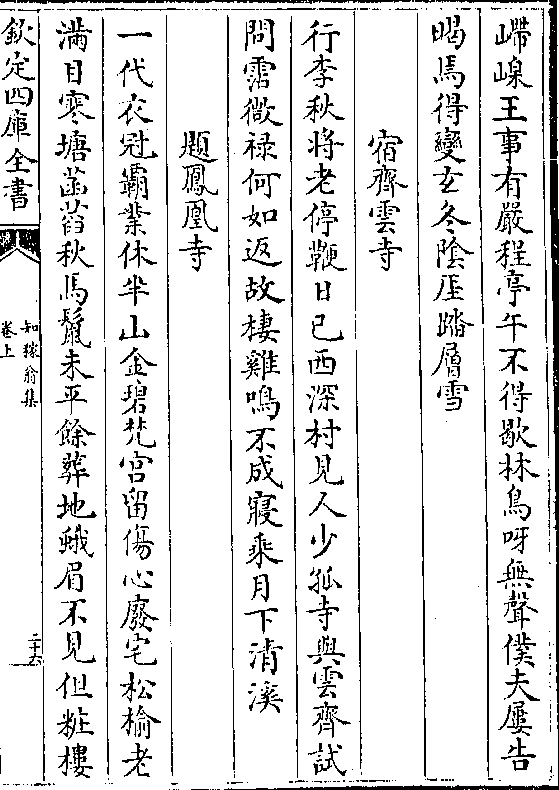 嵽嵲王事有嚴程亭午不得歇林鳥呀無聲僕夫屢告
暍馬得變玄冬陰厓踏層雪
宿齊雲寺
行李秋將老停鞭日已西深村見人少孤寺與雲齊試
問霑微祿何如返故棲雞鳴不成寢乘月下清溪
題鳳凰寺
一代衣冠霸業休半山金碧梵宮留傷心廢宅松楸老
滿目寒塘菡萏秋馬鬛未平餘葬地蛾眉不見但粧樓
欽定四庫全書
知稼翁集
卷上
二十六